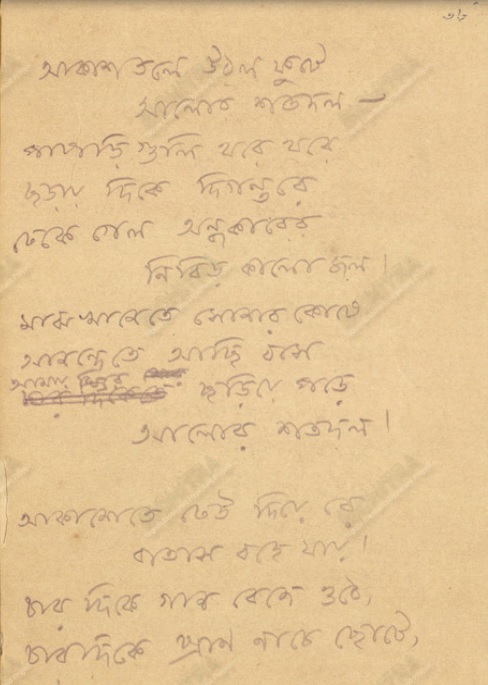 ৩৮
আকাশতলে উঠল ফুটে
আলোর শতদল —
পাপড়ি গুলি থরে থরে
ছড়ায় দিকে দিগন্তরে
ঢেকে গেল অন্ধকারের
নিবিড় কালো জল।
মাঝখানেতে সোনার কোষে
আনন্দেতে আছি বসে
আমায় ঘিরে ছড়িয়ে পড়ে
আলোর শতদল।
আকাশেতে ঢেউ দিয়ে রে
বাতাস বহে যায়।
চার দিকে গান বেজে ওঠে,
চারদিকে প্রাণ নাচে ছোটে,